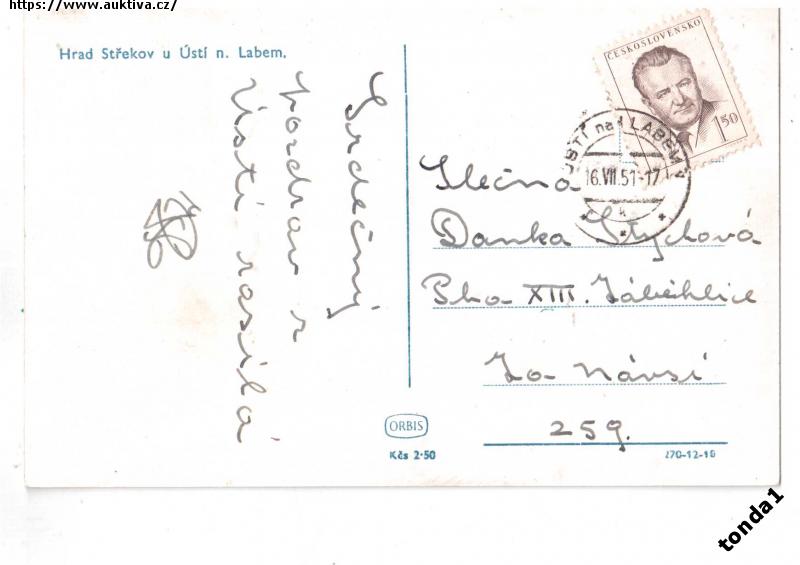 https://www.auktiva.cz/
Hrad Střekov u Ústí n. Labem.
Srdečný
pozdrav z
Ústí zasílá
ČESKOSLOVENSKO
1.50
ÚSTÍ nad LABEM
16.VII.51-17
k
Slečna
Danka Stychová
Pha XIII. Záběhlice
Za Návsí
259.
ORBIS
Kčs 2·50
270-12-16
tonda1